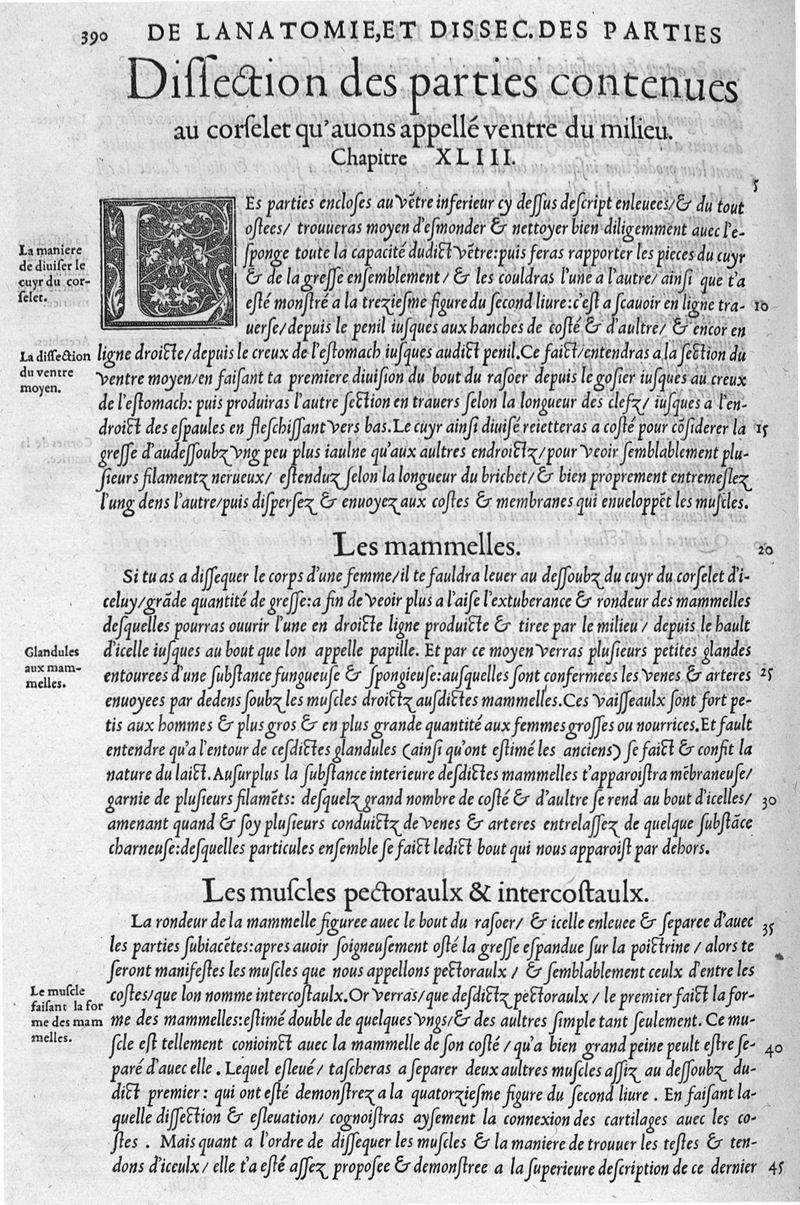 390 DE LANATOMIE, ET DISSEC. DES PARTIES
Diſſection des parties contenues
au corſelet qu'auons appellé ventre du milieu.
Chapitre XLIII.
5
LEs parties encloſes au vẽtre inferieur cy deſſus deſcript enleuees/& du tout
oſtees/ trouueras moyen d'eſmonder & nettoyer bien diligemment auec l'e-
La maniere
de diuiſer le
cuyr du cor-
ſelet.
ſponge toute la capacité dudict vẽtre: puis feras rapporter les pieces du cuyr
& de la greſſe enſemblement/ & les couldras l'une a l'autre/ ainſi que t'a
eſté monſtré a la trezieſme figure du ſecond liure: c'eſt a ſcauoir en ligne tra- 10
uerſe/ depuis le penil iuſques aux hanches de coſté & d'aultre/ & encor en
La diſſection
du ventre
moyen.
ligne droicte/ depuis le creux de l'eſtomach iuſques audict penil. Ce faict/ entendras a la ſection du
ventre moyen/ en faiſant ta premiere diuiſion du bout du raſoer depuis le goſier iuſques au creux
de l'eſtomach: puis produiras l'autre ſection en trauers ſelon la longueur des clefz/ iuſques a l'en-
droict des eſpaules en fleſchiſſant vers bas. Le cuyr ainſi diuiſé reietteras a coſté pour cõſiderer la 15
greſſe d'audeſſoubz vng peu plus iaulne qu'aux aultres endroictz/ pour veoir ſemblablement plu-
ſieurs filamentz nerueux/ eſtenduz ſelon la longueur du brichet/ & bien proprement entremeſlez
l'ung dens l'autre/ puis diſperſez & enuoyez aux coſtes & membranes qui enueloppẽt les muſcles.
Les mammelles. 20
Si tu as a diſſequer le corps d'une femme/ il te fauldra leuer au deſſoubz du cuyr du corſelet d'i-
celuy/ grãde quantité de greſſe: a fin de veoir plus a l'aiſe l'extuberance & rondeur des mammelles
deſquelles pourras ouurir l'une en droicte ligne produicte & tiree par le milieu/ depuis le hault
Glandules
aux mam-
melles.
d'icelle iuſques au bout que lon appelle papille. Et par ce moyen verras pluſieurs petites glandes
entourees d'une ſubſtance fungueuſe & ſpongieuſe: auſquelles ſont confermees les venes & arteres 25
enuoyees par dedens ſoubz les muſcles droictz auſdictes mammelles. Ces vaiſſeaulx ſont fort pe-
tis aux hommes & plus gros & en plus grande quantité aux femmes groſſes ou nourrices. Et fault
entendre qu'a l'entour de ceſdictes glandules (ainſi qu'ont eſtimé les anciens) ſe faict & confit la
nature du laict. Auſurplus la ſubſtance interieure deſdictes mammelles t'apparoiſtra mẽbraneuſe/
garnie de pluſieurs filamẽts: deſquelz grand nombre de coſté & d'aultre ſe rend au bout d'icelles/ 30
amenant quand & ſoy pluſieurs conduictz de venes & arteres entrelaſſez de quelque ſubſtãce
charneuſe: deſquelles particules enſemble ſe faict ledict bout qui nous apparoiſt par dehors.
Les muſcles pectoraulx & intercoſtaulx.
La rondeur de la mammelle figuree auec le bout du raſoer/ & icelle enleuee & ſeparee d'auec 35
les parties ſubiacẽtes: apres auoir ſoigneuſement oſté la greſſe eſpandue ſur la poictrine/ alors te
ſeront manifeſtes les muſcles que nous appellons pectoraulx/ & ſemblablement ceulx d'entre les
Le muſcle
faiſant la for
me des mam
melles.
coſtes/ que lon nomme intercoſtaulx. Or verras/ que deſdictz pectoraulx/ le premier faict la for-
me des mammelles: eſtimé double de quelques vngs/ & des aultres ſimple tant ſeulement. Ce mu-
ſcle eſt tellement conioinct auec la mammelle de ſon coſté/ qu'a bien grand peine peult eſtre ſe- 40
paré d'auec elle. Lequel eſleué/ taſcheras a ſeparer deux aultres muſcles aſſiz au deſſoubz du-
dict premier: qui ont eſté demonſtrez a la quatorzieſme figure du ſecond liure. En faiſant la-
quelle diſſection & eſleuation/ cognoiſtras ayſement la connexion des cartilages auec les co-
ſtes. Mais quant a l'ordre de diſſequer les muſcles & la maniere de trouuer les teſtes & ten-
dons d'iceulx/ elle t'a eſté aſſez propoſee & demonſtree a la ſuperieure deſcription de ce dernier 45